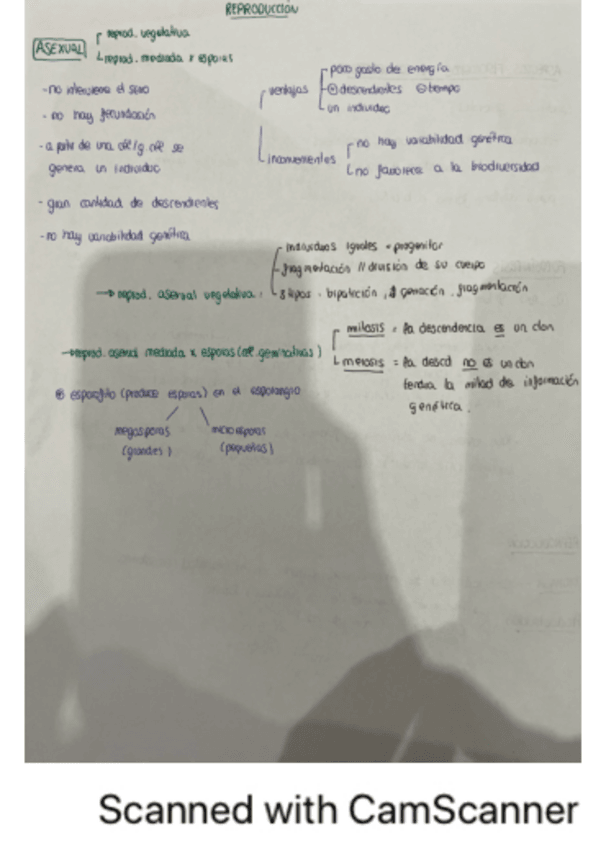 REPRODUCCIÓN
ASEXUAL
reprod. vegetativa
reprod. mediada x esporas
- no interviene el sexo
- no hay fecundación
- a partir de una cél/g. cél se
genera un individuo
- gran cantidad de descendientes
- no hay variabilidad genética
ventajas
poco gasto de energía
⊕ descendientes ⊖ tiempo
un individuo
inconvenientes
no hay variabilidad genética
no favorece a la biodiversidad
→ reprod. asexual vegetativa:
individuos iguales = progenitor
fragmentación // división de su cuerpo
3 tipos: bipartición, gemación, fragmentación
→ reprod. asexual mediada x esporas (cél. germinativas)
mitosis = la descendencia es un clon
meiosis = la descd no es un clon
tendrá la mitad de información
genética.
esporofito (produce esporas) en el esporangio
megasporas
(grandes)
microesporas
(pequeñas)
Scanned with CamScanner